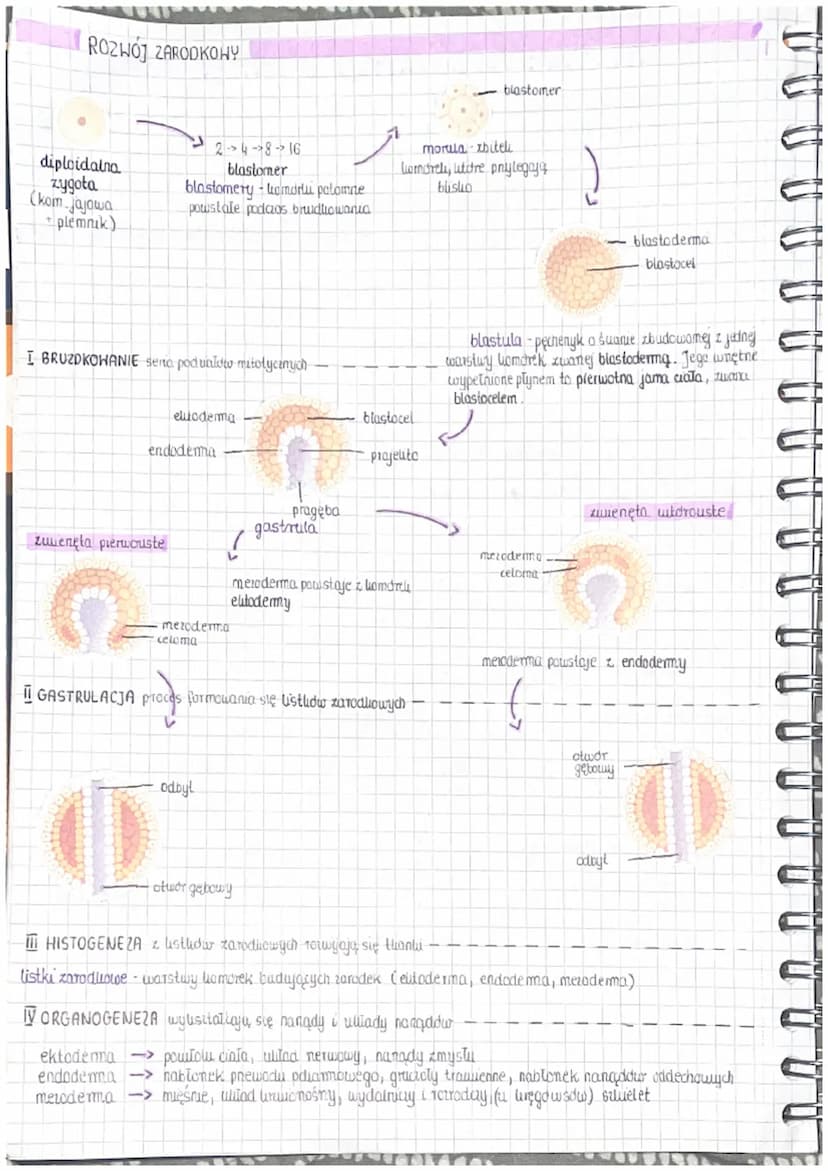 ROZWÓJ ZARODKOWY
blastomer
diploidalna
zygota
(kom. jajowa
+ plemnik)
2 → 4 → 8 → 16
blastomer
blastomery - komórki potomne
powstałe podczas bruzdkowania
morula - zbitek
komórek, które przylegają
blisko
blastoderma
blastocel
blastula - pęcherzyk o ścianie zbudowanej z jednej
warstwy komórek zwanej blastodermą. Jego wnętrze
wypełnione płynem to pierwotna jama ciała, zwana
blastocelem.
I BRUZDKOWANIE seria podziałów mitotycznych
ektoderma
blastocel
endoderma
prajelito
pragęba
gastrula
zwierzęta pierwouste
zwierzęta wtórouste
mezoderma powstaje z komórek
ektodermy
mezoderma
celoma
mezoderma
celoma
mezoderma powstaje z endodermy
II GASTRULACJA proces formowania się listków zarodkowych
odbyt
otwór gębowy
otwór
gębowy
odbyt
III HISTOGENEZA z listków zarodkowych rozwijają się tkanki
listki zarodkowe - warstwy komórek budujących zarodek (ektoderma, endoderma, mezoderma)
IV ORGANOGENEZA wykształcają się narządy i układy narządów
ektoderma → powłoki ciała, układ nerwowy, narządy zmysłu
endoderma → nabłonek przewodu pokarmowego, gruczoły trawienne, nabłonek narządów oddechowych
mezoderma → mięśnie, układ krwionośny, wydalniczy i rozrodczy, (u kręgowców) szkielet